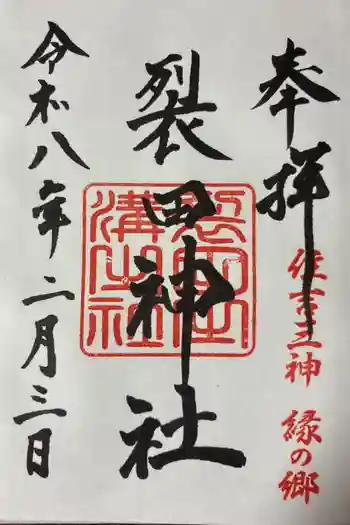 奉拝
住吉三神 縁の郷
裂田神社
令和八年二月三日